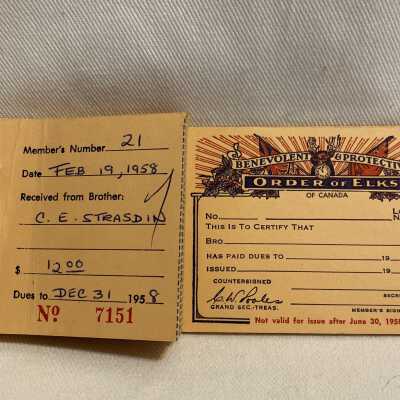 Member's Number 21
Date FEB 19, 1958
Received from Brother:
C. E. STRASDIN
$ 12.00
Dues to DEC 31 1958
Nº 7151
BENEVOLENT & PROTECTIVE
ORDER OF ELKS
OF CANADA
No.
THIS IS TO CERTIFY THAT
BRO
HAS PAID DUES TO 19
ISSUED 19
COUNTERSIGNED
GRAND SEC.-TREAS.
MEMBER'S SIGN
Not valid for issue after June 30, 195